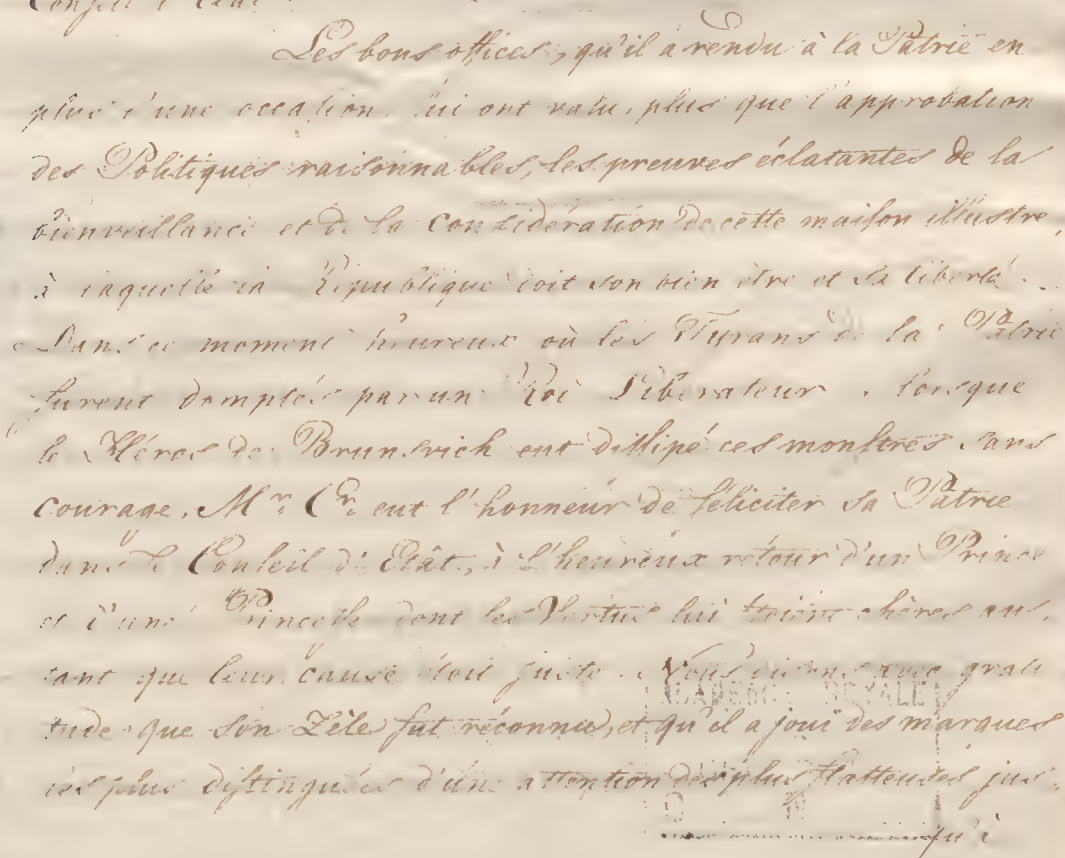 Conseil d'Etat.
Les bons offices, qu'il a rendu à la Patrie en
plus d'une occasion, lui ont valu, plus que l'approbation
des Politiques raisonnables, les preuves éclatantes de la
bienveillance et de la considération de cette maison illustre,
à laquelle la République doit son bien être et sa liberté.
Dans ce moment heureux où les Tyrans de la Patrie
furent domptés par un Roi Libérateur, lorsque
le Héros de Brunsvich eut dissipé ces monstres sans
courage, Mr. Cr. eut l'honneur de féliciter sa Patrie
dans le Conseil d'Etât, à l'heureux retour d'un Prince
et d'une Princesse dont les Vertus lui étoient chères au-
tant que leur cause étoit juste. Nous disons avec grati
tude que son Zèle fut réconnu, et qu'il a joui des marques
les plus distinguées d'une attention des plus flatteuses jus-
qu'à
ACADEM ROYALE